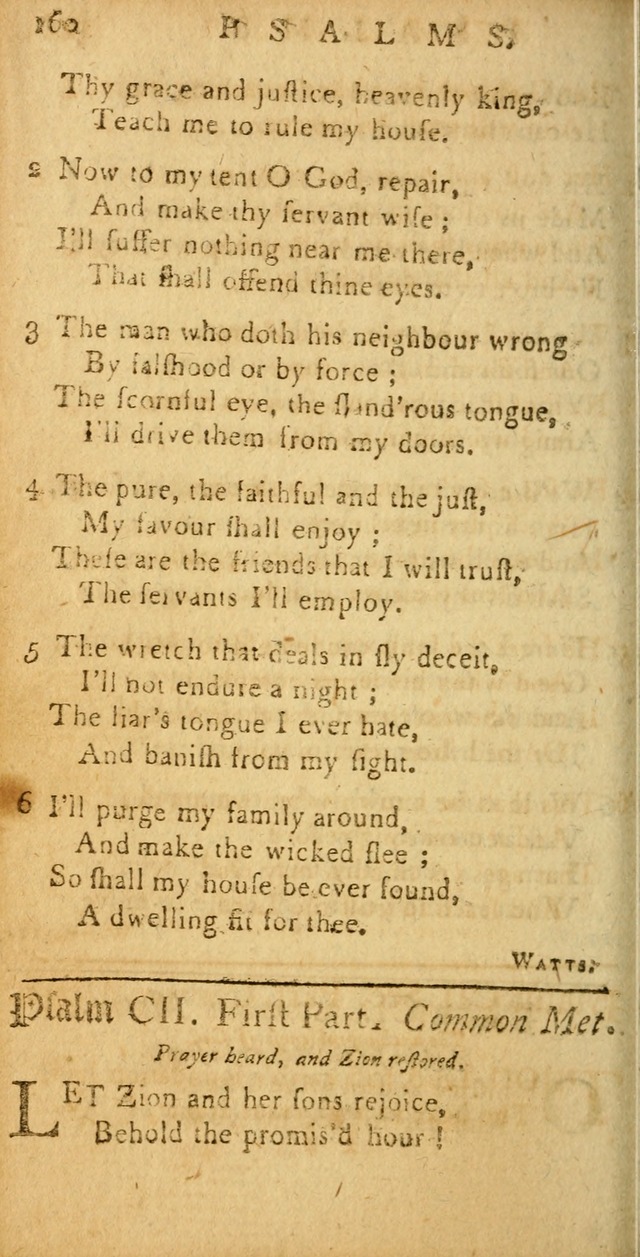 160 PSALMS.
Thy grace and juſtice, heavenly king,
Teach me to rule my houſe.
2 Now to my tent O God, repair,
And make thy ſervant wiſe ;
I'll ſuffer nothing near me there,
That ſhall offend thine eyes.
3 The man who doth his neighbour wrong
By falſhood or by force ;
The ſcornful eye, the ſland'rous tongue,
I'll drive them from my doors.
4 The pure, the faithful and the juſt,
My favour ſhall enjoy ;
Theſe are the friends that I will truſt,
The ſervants I'll employ.
5 The wretch that deals in ſly deceit,
I'll not endure a night ;
The liar's tongue I ever hate,
And baniſh from my ſight.
6 I'll purge my family around,
And make the wicked flee ;
So ſhall my houſe be ever found,
A dwelling fit for thee.
WATTS.
Pſalm CII. Firſt Part. Common Met.
Prayer heard, and Zion reſtored.
LET Zion and her ſons rejoice,
Behold the promis'd hour !